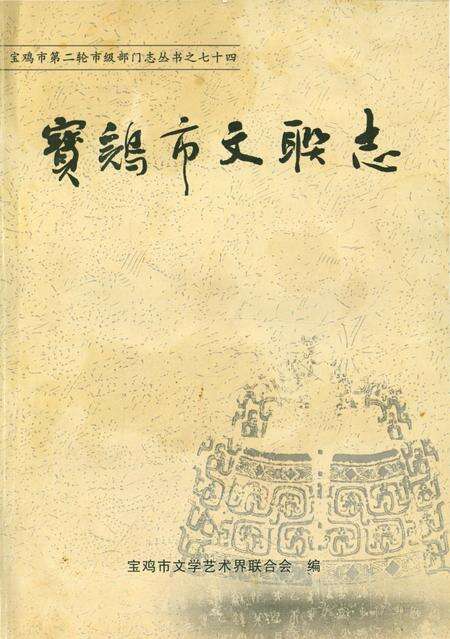 宝鸡市第二轮市级部门志丛书之七十四
寶鷄市文联志
宝鸡市文学艺术界联合会 编